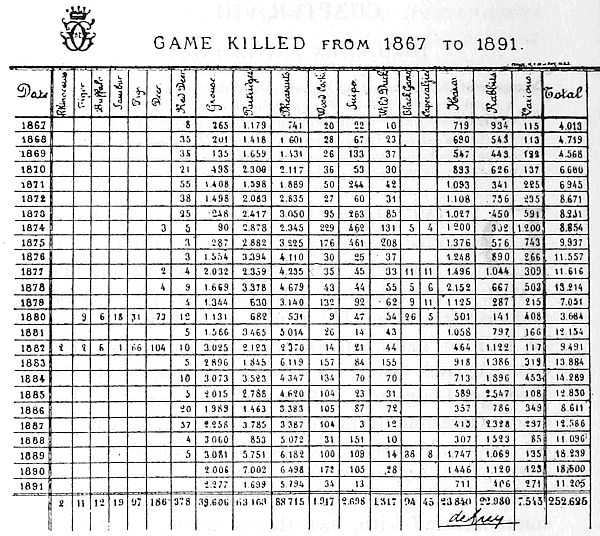 GAME KILLED FROM 1867 TO 1891.
Date Rhinoceros Tiger Buffalo Sambur Pigs Deer Red Deer Grouse Partridges Pheasants Wood Cock Snipe Wild Duck Black Game Capercailzie Hares Rabbits Various Total
1867 8 265 1.179 741 20 22 10 719 934 115 4.013
1868 35 201 1.418 1.601 28 67 23 690 543 113 4.719
1869 35 135 1.659 1.431 26 133 37 547 443 122 4.568
1870 21 498 2.117 36 53 30 893 626 137
1871 55 1.408 1.598 1.889 50 244 42 1.093 341 225 6.945
1872 38 1.498 2.083 2.835 27 60 31 1.108 756 235 8.671
1873 25 248 2.417 3.050 95 263 85 1.027 450 591 8.251
1874 3 5 90 2.878 2.345 229 462 131 5 4 1.200 302 1.200 8.854
1875 3 287 2.882 3.225 176 461 208 1.376 576 743 9.937
1876 3 1.554 3.394 4.110 30 25 37 1.248 890 266 11.557
1877 2 4 2.032 2.359 4.235 35 45 33 11 11 1.496 1.044 309 11.616
1878 4 9 1.669 3.378 4.679 43 44 55 5 6 2.152 667 503 13.214
1879 4 1.344 630 3.140 132 92 62 9 11 1.125 287 215 7.051
1880 9 6 18 31 73 12 1.131 682 531 9 47 54 26 5 501 141 408 3.684
1881 5 1.566 3.465 5.014 26 14 43 1.058 797 166 12.154
1882 2 2 6 1 66 104 10 3.025 2.123 2.370 14 21 44 464 1.122 117 9.491
1883 5 2.896 1.845 6.119 157 84 155 918 1.386 319 13.884
1884 10 3.073 3.523 4.347 134 70 70 713 1.896 453 14.289
1885 5 2.015 2.788 4.620 104 23 31 589 2.547 108 12.830
1886 20 1.989 1.463 3.383 105 87 72 357 786 349 8.611
1887 37 2.258 3.785 3.387 104 3 12 415 2.328 257 12.586
1888 4 3.060 853 5.072 31 151 10 307 1.523 85 11.096
1889 5 3.081 5.751 6.182 100 109 14 38 8 1.747 1.069 135 18.239
1890 2.006 7.002 6.498 172 105 28 1.446 1.120 123 18.500
1891 2.277 1.699 5.794 34 13 711 406 271 11.205
2 11 12 19 97 186 378 39.606 1.917 2.698 1.317 94 45 23.840 22.980 7.343 252.625